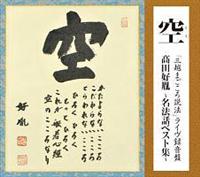 空
「三越まごころ説法」ライヴ録音盤
高田好胤
～名法話ベスト集～
空
かたよらないこころ
こだわらないこころ
とらわれないこころ
ひろくひろく
もっとひろく
これが般若心経
空のこころなり
好胤